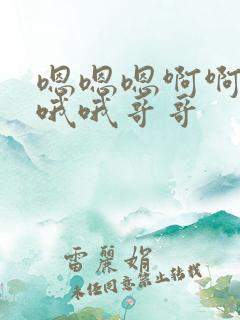 嗯嗯嗯啊啊
哦哦哥哥
雷麗娟
未经同意禁止转载